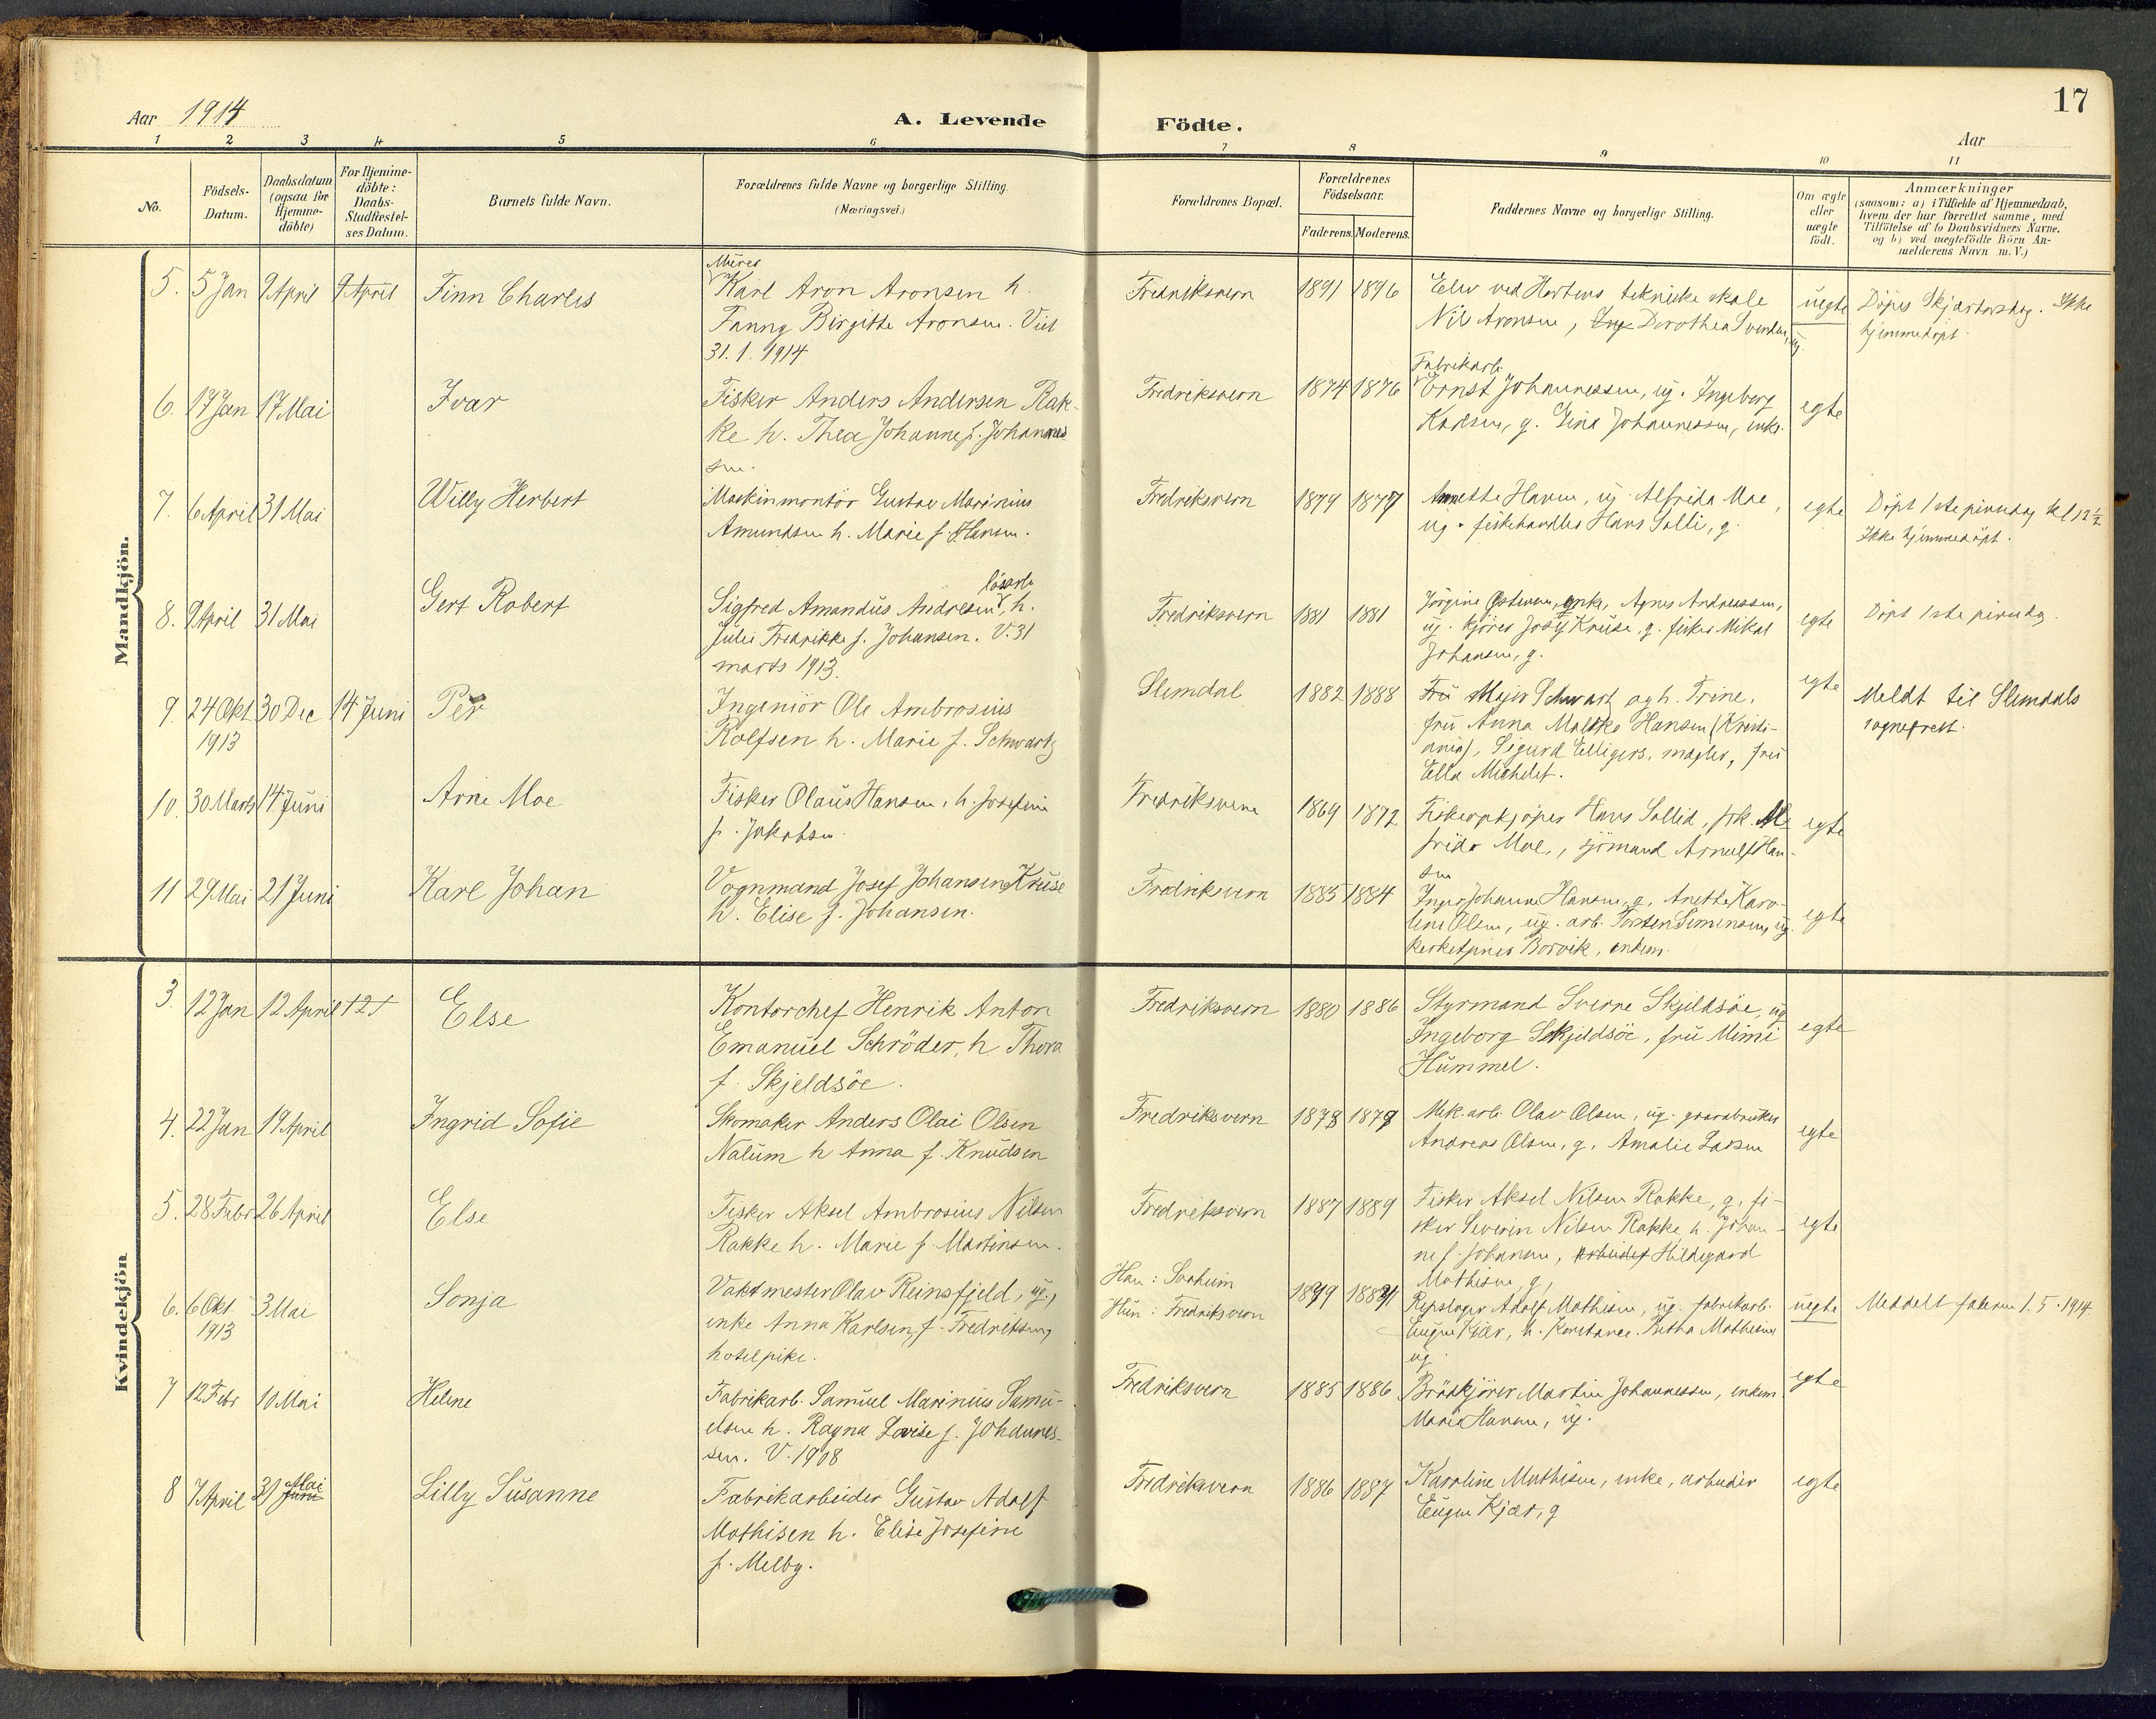 17
Aar 1914
A. Levende Födte.
Aar
1 2 3 4 5 6 7 8 9 10 11
No.
Födsels-
Datum.
Daabsdatum
(ogsaa for
Hjemme-
döbte)
For Hjemme-
döbte:
Daabs-
Stadfæstel-
ses Datum.
Barnets fulde Navn.
Forældrenes fulde Navne og borgerlige Stilling.
(Næringsvei.)
Forældrenes Bopæl.
Forældrenes
Födselsaar.
Faderens. Moderens.
Faddernes Navne og borgerlige Stilling.
Om ægte
eller
uægte
födt.
Anmærkninger
(saasom: a) i Tilfælde af Hjemmedaab,
hvem der har forrettet samme, med
Tilföielse af to Daabsvidners Navne,
og b) ved uegtefödte Börn An-
melderens Navn m.V.)
Mandkjön.
5. 5 Jan 9 April 9 April Finn Charles
Murer
Karl Aron Aronsen h.
Fanny Birgitte Aronsen. Viet
31.1.1914
Fredriksvern 1891 1896
Elev ved Hortens tekniske skole
Nils Aronsen, Dorothea Svendsen, ug.
uegte
Döpes Skjærtorsdag. Ikke
hjemmedöpt.
6. 17 Jan 17 Mai Ivar
Fisker Anders Andersen Rak-
ke h. Thea Johanne f. Johannes
sen.
Fredriksvern 1874 1876
Fabrikarb.
Ernst Johannessen, ug. Ingeborg
Karlsen, g. Gina Johannessen, enke.
egte
7. 6 April 31 Mai Willy Herbert
Maskinmontör Gustav Marinius
Amundsen h. Marie f. Hansen.
Fredriksvern 1879 1877
Anette Hansen, ug. Alfrida Moe,
ug. fiskehandler Hans Solli, g.
egte
Döpt 1ste pinsedag kl 12½
Ikke hjemmedöpt.
8. 9 April 31 Mai Gert Robert
lösarb
Sigfred Amandus Andresen, h.
Julie Fredrikke f. Johansen. V. 31
marts 1913.
Fredriksvern 1881 1881
Jörgine Ostersen, enke, Agnes Andreassen,
ug. kjörer Josef Kruse, g. fisker Mikal
Johansen, g.
egte
Döpt 1ste pinsedag.
9. 24 Okt 30 Dec 14 Juni Per
1913
Ingeniör Ole Ambrosius
Rolfsen h. Marie f. Schwartz
Slemdal 1882 1888
Fru Major Schwartz og h. Trine,
fru Anna Hansen (Kristi-
ania), Sigurd Elligers, megler, fru
Ella Michelet.
egte
Meldt til Slemdals
sogneprest.
10. 30 Marts 14 Juni Arne Moe
Fisker Olaus Hansen, h. Josefine
f. Jakobsen.
Fredriksvern 1869 1872
Fiskeopkjöper Hans Sollid, frk. Al-
frida Moe, sjömand Arnulf Han-
sen
egte
11 29 Mai 21 Juni Karl Johan
Vognmand Josef Johansen Kruse
h. Elise f. Johansen.
Fredriksvern 1885 1884
Inger Johanne Hansen, g. Anette Karo-
line Olsen, ug. arb. Torsten Simensen, ug.
Borvik, enkem.
egte
Kvindekjön.
3. 12 Jan 12 April Else
Kontorchef Henrik Anton
Emanuel Schröder, h Thora
f. Skjeldsöe.
Fredriksvern 1880 1886
Styrmand Sverre Skjeldsöe, ug
Ingeborg Skjeldsöe, fru Mimi
Hummel.
egte
4. 22 Jan 19 April Ingrid Sofie
Skomaker Anders Olai Olsen
Nalum h Anna f. Knudsen
Fredriksvern 1878 1879
Mek. arb. Olav Olsen, ug. gaardbruker
Andreas Olsen, g. Amalie Larsen
egte
5. 28 Febr 26 April Else
Fisker Aksel Ambrosius Nilsen
Rakke h. Marie f. Martinsen.
Fredriksvern 1887 1889
Fisker Aksel Nilsen Rakke, g. fi-
sker Severin Nilsen Rakke h. Johan-
ne f. Johansen, arbeider Hildegard
Mathisen, g,
egte
6. 6 Okt 3 Mai Sonja
1913
Vaktmester Olav Reinsfjeld, ug.,
enke Anna Karlsen, f. Fredriksen,
hotelpike.
Han: Sørheim
Hun: Fredriksvern
1879 1884
Repslager Adolf Mathisen, ug. fabrikarb.
Eugen Kjær, h. Konstance. Betha Mathisen
ug.
uegte
Meddelt faderen 1.5.1914
7 12 Febr 10 Mai Helene
Fabrikarb. Samuel Marinius Samu-
elsen h. Ragna Lovise f. Johannes-
sen. V. 1908
Fredriksvern 1885 1886
Brödkjörer Martin Johannessen, enkem
Marie Hansen, ug.
egte
8 7 April 31 Mai Juni Lilly Susanne
Fabrikarbeider Gustav Adolf
Mathisen h. Elise Josefine
f. Melby.
Fredriksvern 1886 1887
Karoline Mathisen, enke, arbeider
Eugen Kjær, g
egte